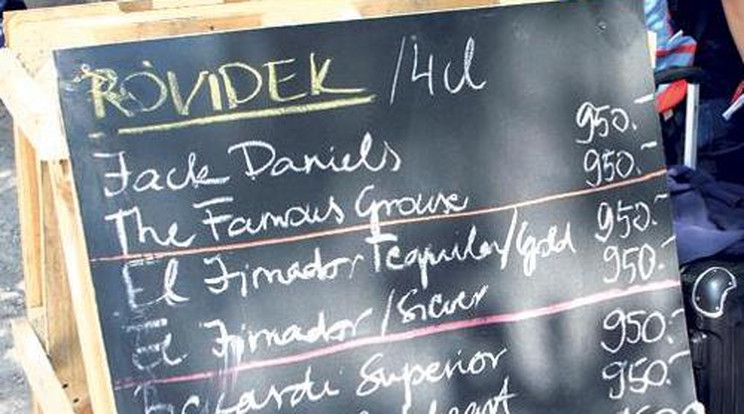 RÖVIDEK /4cl
Jack Daniels 950.-
The Famous Grouse 950.-
El Jimador Tequila/Gold 950.-
El Jimador/Silver 950.-
Bacardi Superior 950.-
950.-